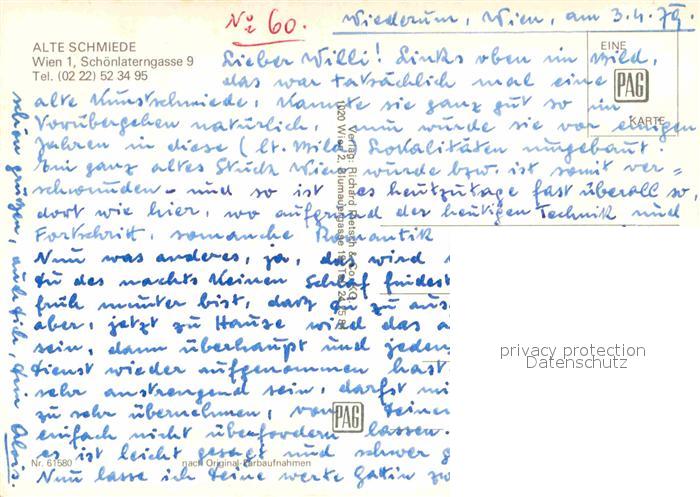 No 60.
Wiederum, Wien, am 3.4.79.
ALTE SCHMIEDE
Wien 1, Schönlaterngasse 9
Tel. (02 22) 52 34 95
EINE
PAG
KARTE
Lieber Willi! Links oben im Bild,
das war tatsächlich mal eine
alte Kunstschmiede, kannte sie ganz gut so im
Vorübergehen natürlich, nun wurde sie vor einigen
Jahren in diese (lt. Bild) Lokalitäten umgebaut.
Ein ganz altes Stück Wien wurde bzw. ist somit ver=
schwunden - und so ist es heutzutage fast überall so,
dort wie hier, wo aufgrund der heutigen Technik und
Fortschritt, so manche Romantik
Nun was anderes, ja, das wird
du des nachts keinen Schlaf findest
früh munter bist, daß du zu aus
aber, jetzt zu Hause wird das a
sein, dann überhaupt und jeden
Dienst wieder aufgenommen hast
sehr anstrengend sein, darfst
zu sehr übernehmen, von Deinen
einfach nicht überfordern lassen.
es ist leicht gesagt und schwer g
Nun lasse ich Deine werte Gattin
schön grüßen, auch Dich, Dein Alois.
Verlag: Richard Pietsch & Co. KG
1020 Wien 2, Blumauergasse
PAG
Nr. 61580
nach Original-Farbaufnahmen
privacy protection
Datenschutz